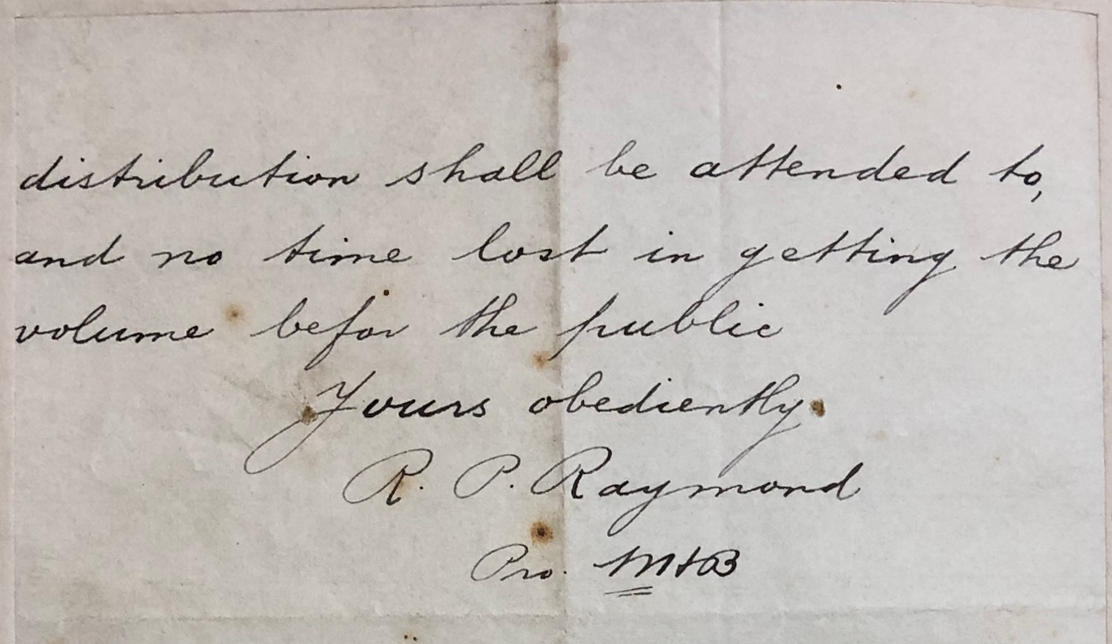 distribution shall be attended to,
and no time lost in getting the
volume befor the public
Yours obediently
R. P. Raymond
Pro.